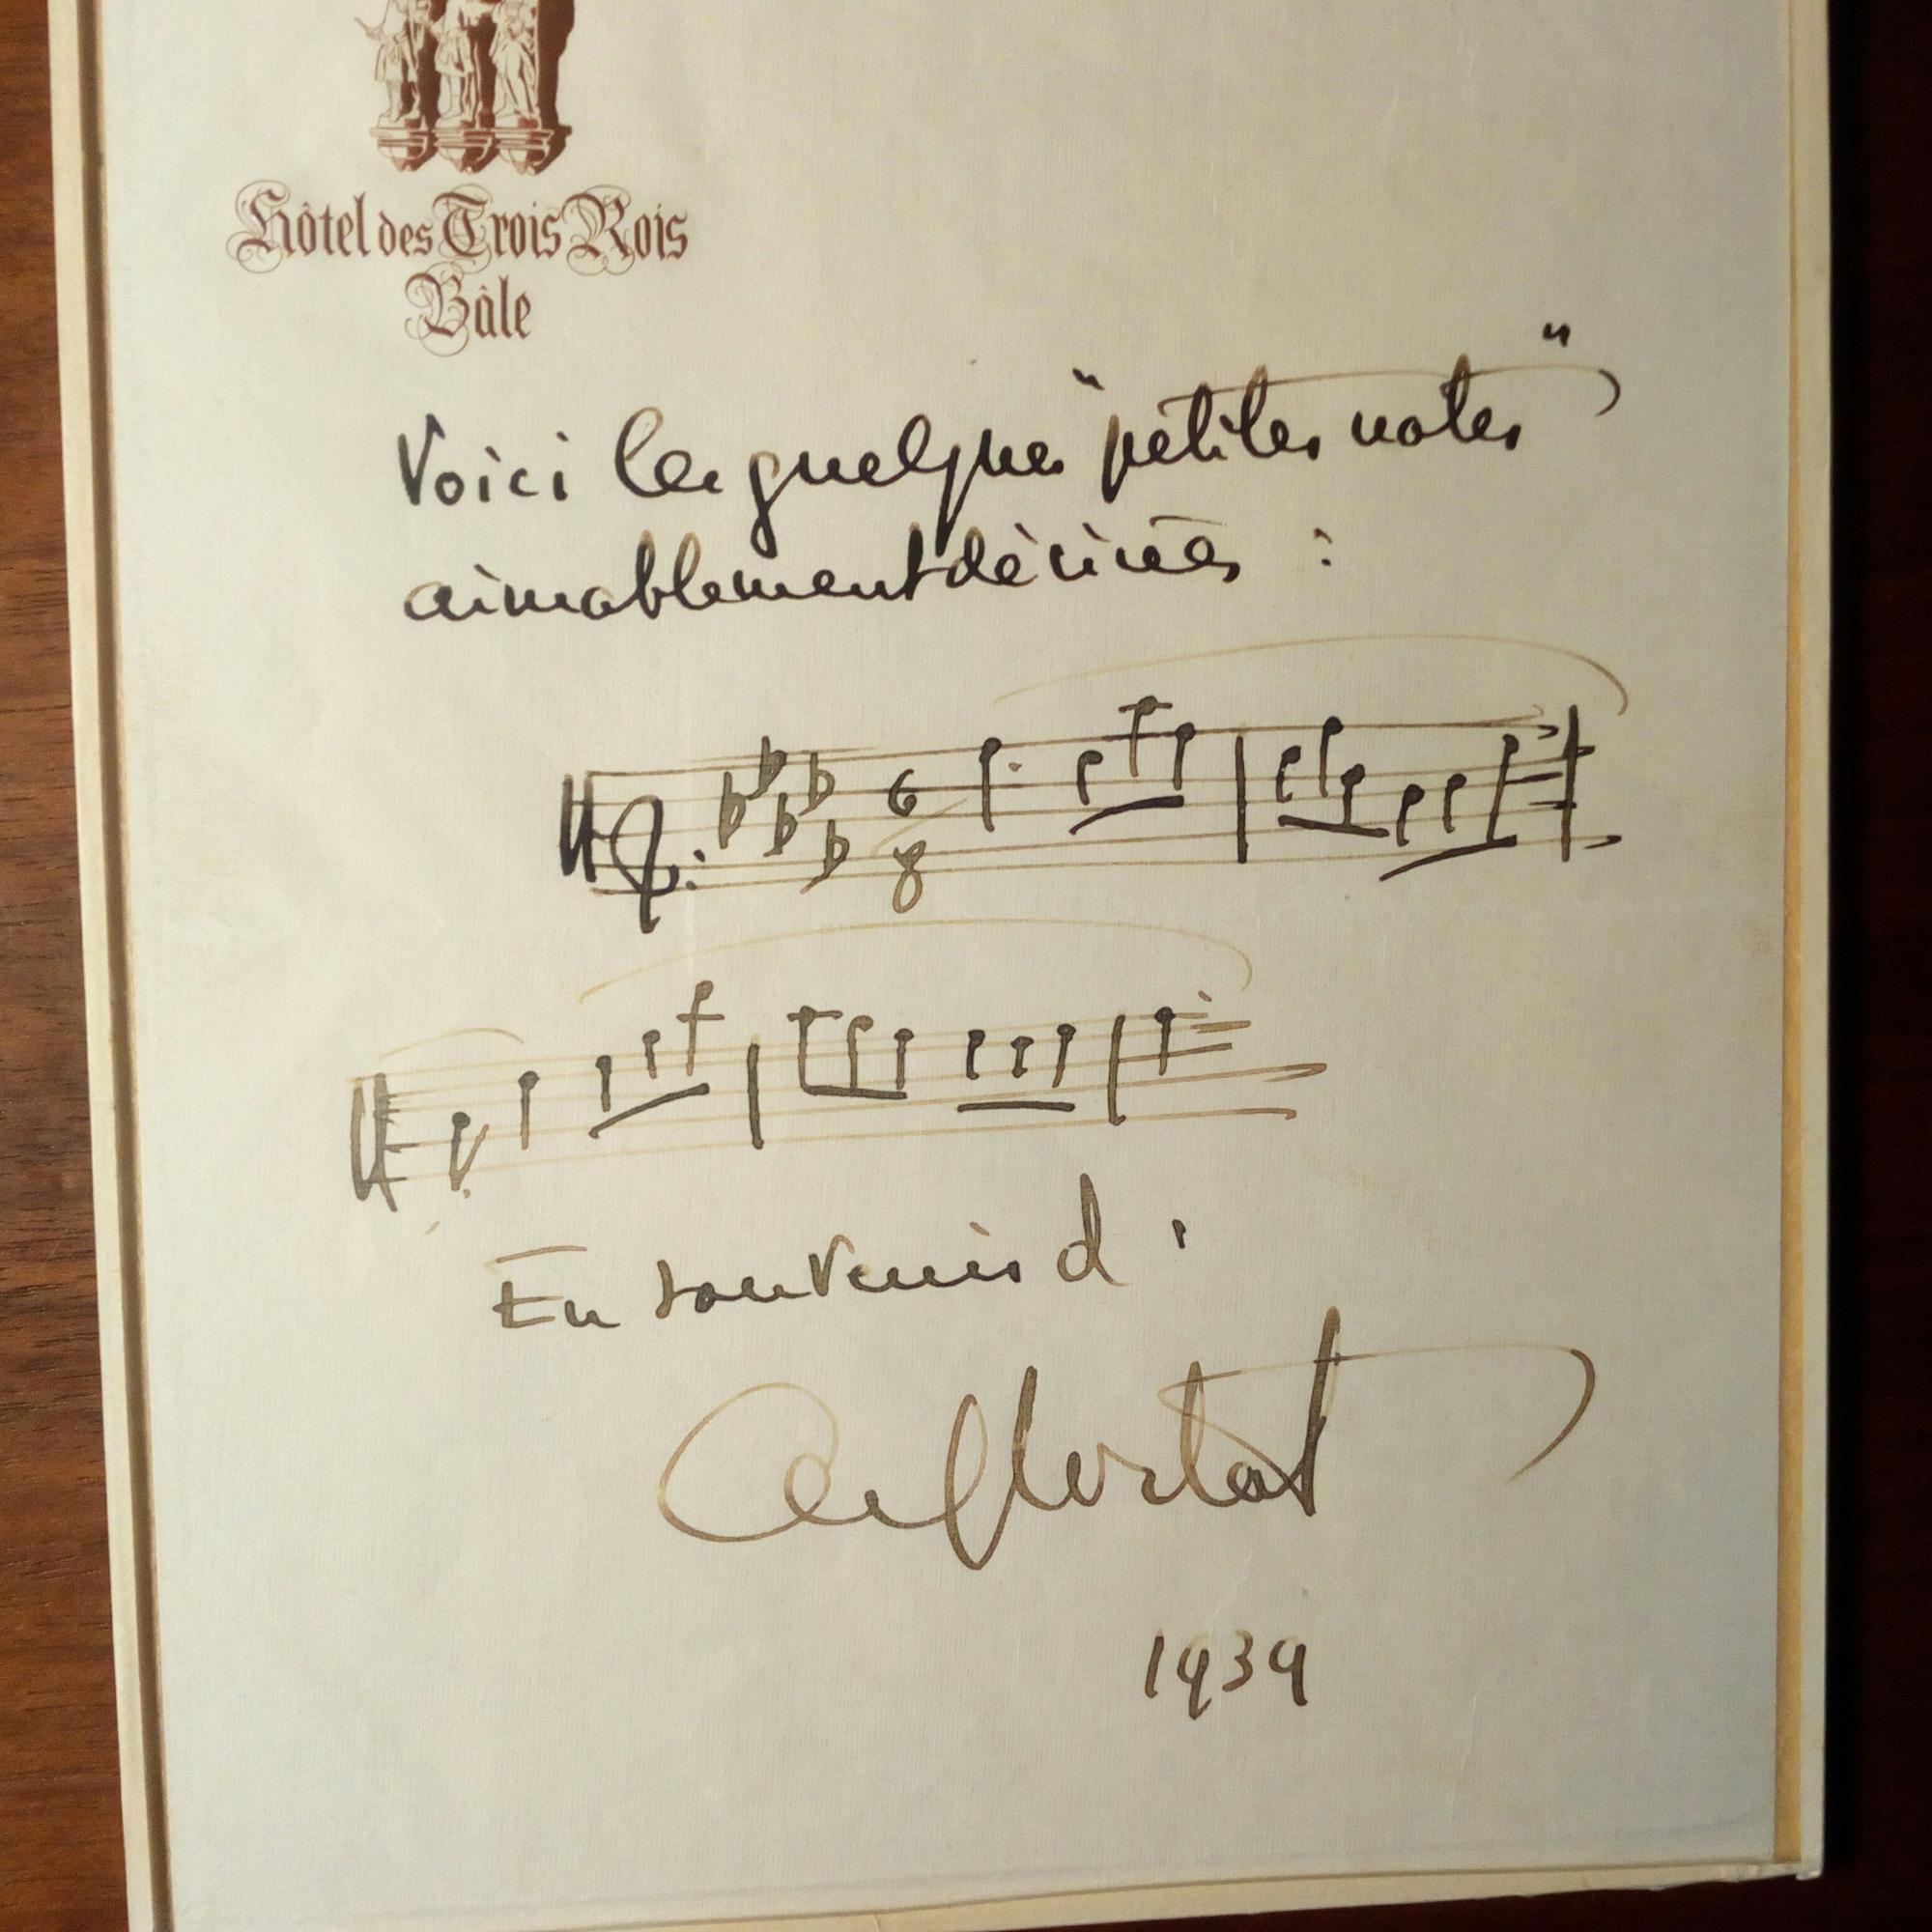 Hôtel des Trois Rois
Bâle
Voici les quelques "petites notes"
aimablement désirées :
6
8
En souvenir d'
Alf Cortot
1939